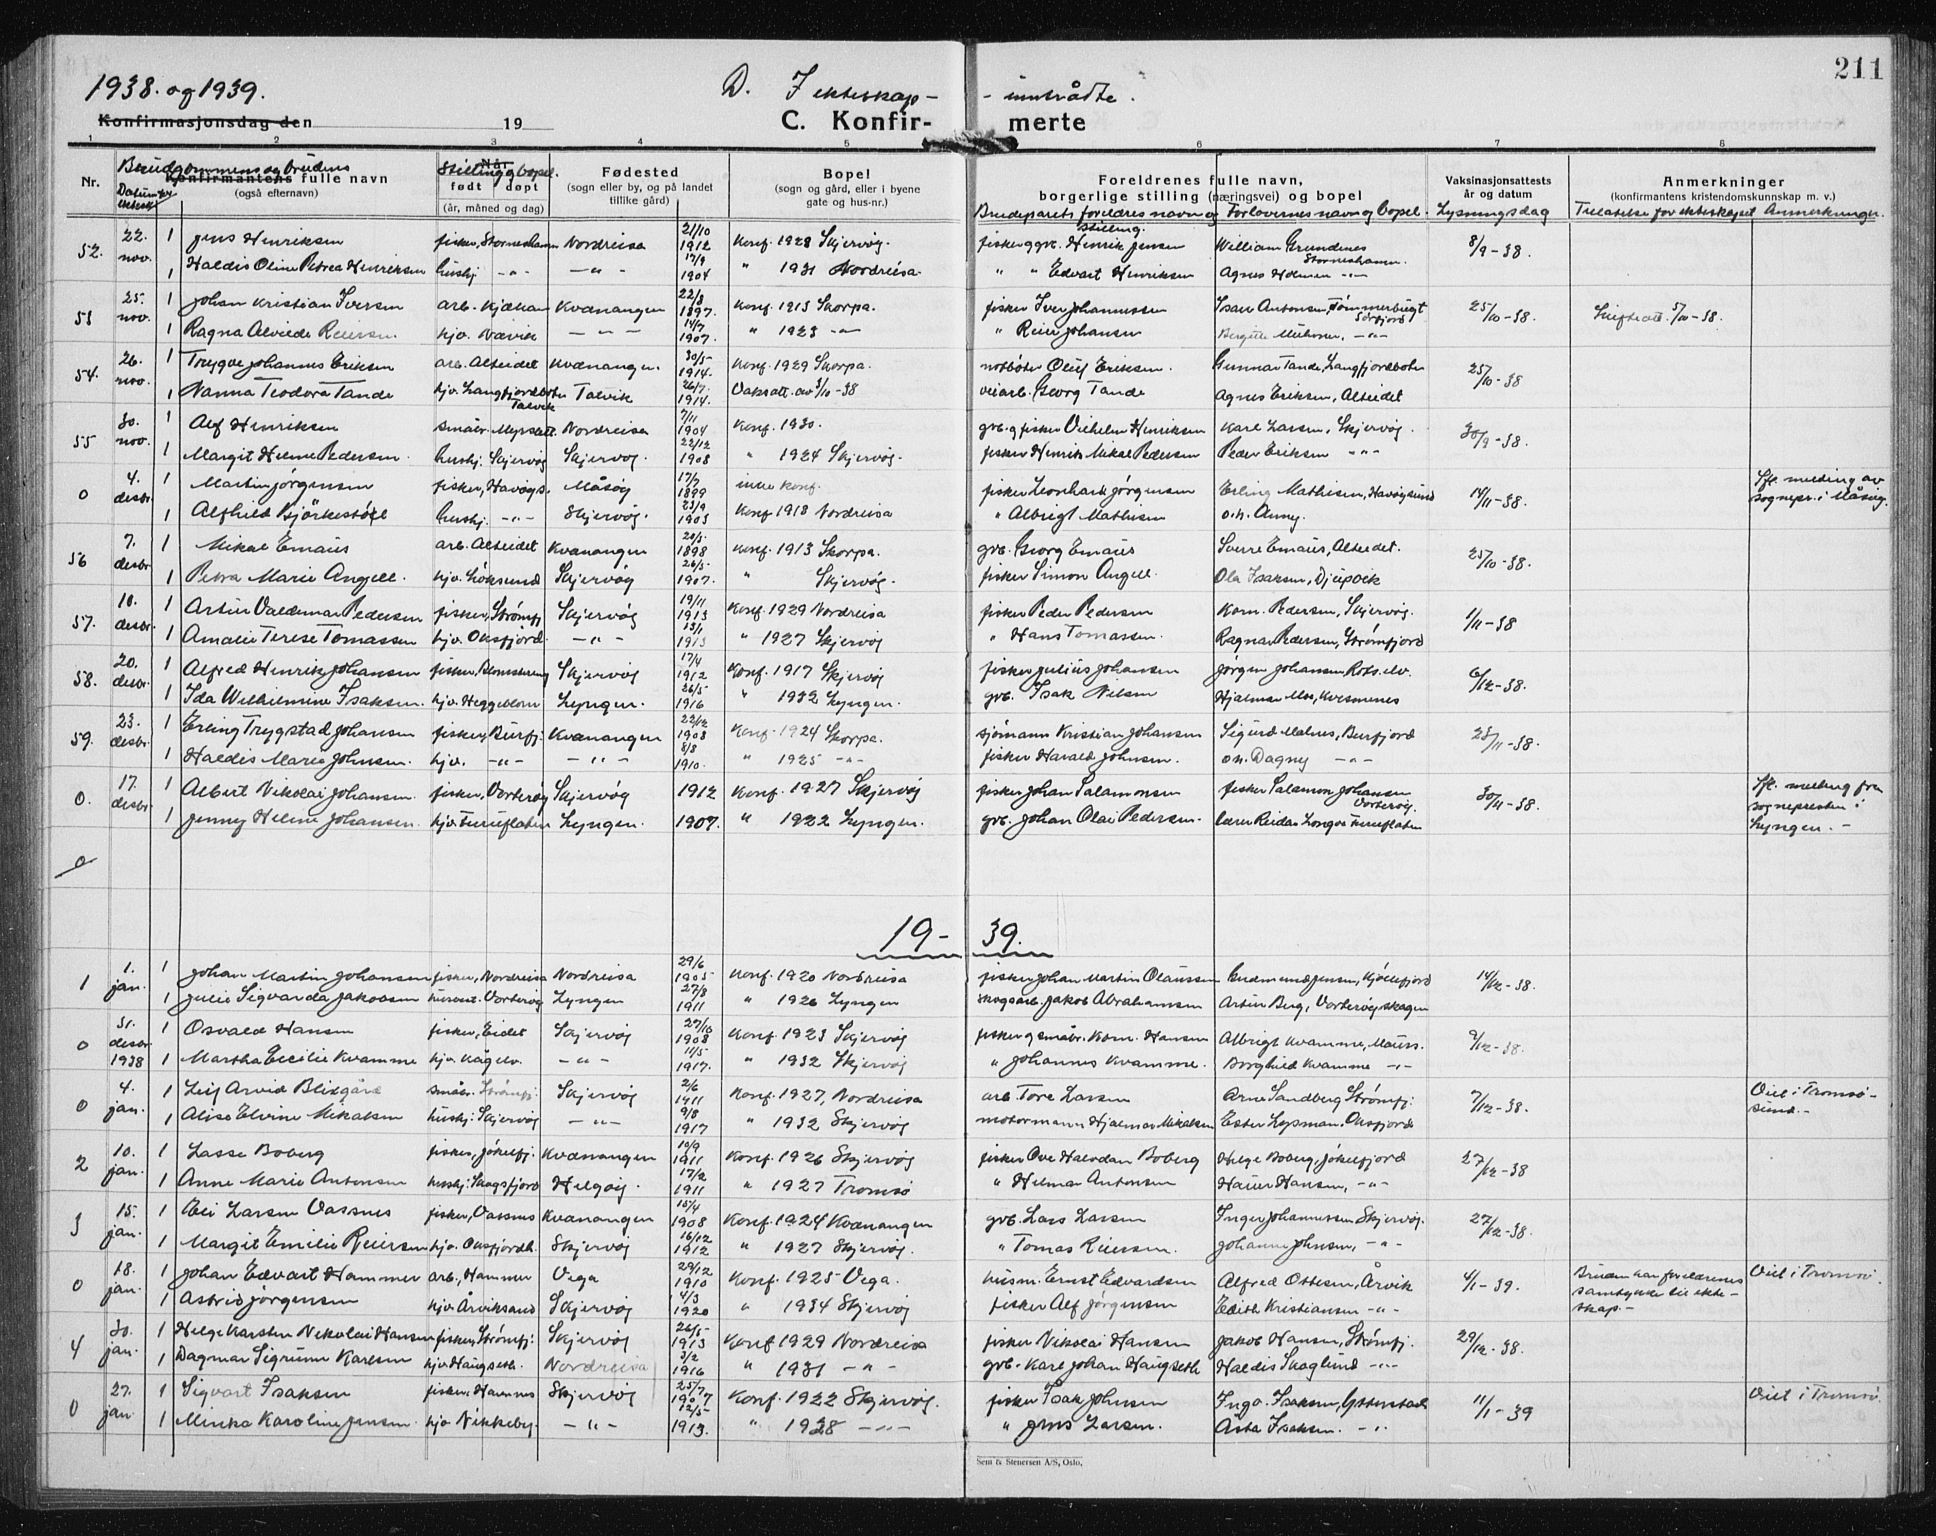 211
1938. og 1939.
D. I ekteskap- - inntrådte.
Konfirmasjonsdag den 19
C. Konfir- merte
1 2 3 4 5 6 7 8
Nr. Brudgommens og brudens Konfirmantens fulle navn (også efternavn)
Stilling og bopel. Når født døpt (år, måned og dag)
Fødested (sogn eller by, og på landet tillike gård)
Bopel (sogn og gård, eller i byene gate og hus-nr.)
Foreldrenes fulle navn, borgerlige stilling (næringsvei) og bopel
Brudeparets foreldres navn og stilling. Forlovernes navn og bopel.
Vaksinasjonsattests år og datum Lysningsdag
Anmerkninger (konfirmantens kristendomskunnskap m. v.) Tillatelse for ekteskapet Anmerkninger.
52. 22. nov. 1 Jens Henriksen fisker, Storneshamn Nordreisa 21/10 1912 Konf. 1928 Skjervøy. fisker g gvb. Henrik Jensen William Grundenes Storneshamn. 8/9-38.
1 Haldis Oline Petrea Henriksen hushj. -"- -"- 17/9 1904 " 1931 Nordreisa. " " Edvart Henriksen Agnes Holmen -"-
53 25. nov. 1 Johan Kristian Iversen arb. Kjækan Kvænangen 22/8 1897. Konf. 1913 Skorpa. fisker Iver Johannessen Isak Antonsen, Tømmerbugt Sörfjord 25/10-38. 5/10-38.
1 Ragna Alvilde Reiersen hjv. Nævik -"- 14/7 1907. " 1923 -"- " Reier Johansen -"-
54. 26. nov. 1 Trygve Johannes Eriksen arb. Alteidet Kvænangen. 30/5- 1914. Konf. 1929 Skorpa. notbøter Oluf Eriksen. Gunnar Tande, Langfjordbotn 25/10-38
1 Nanna Teodora Tande hjv. Langfjordbotn Talvik Talvik 26/7. 1914. Vaksatt. av 3/10-38 veiarb. Georg Tande Agnes Eriksen, Alteidet
55 30. nov. 1 Alf Henriksen småbr. Myrslett Nordreisa 7/11 1904 Konf. 1930. gvb. g fisker Vilhelm Henriksen Karl Larsen, Skjervøy. 30/9-38.
1 Margit Helene Pedersen. hushj. Skjervøy Skjervøy. 22/12 1908 " 1924 Skjervøy. fisker Henrik Mikal Pedersen Peder Eriksen -"-
0 4. desbr. 1 Martin Jörgensen fisker, Havøys. Måsöy 17/9 1899 inne konf. fisker Leonhard Jörgensen Erling Mathisen, Havøysund 14/11-38. Ifl. melding av sognepr. i Måsøy.
1 Alfhild Björkestöl hushj. -"- Skjervøy. 23/9 1903 Konf. 1918 Nordreisa " Albrigt Mathisen o.h. Anny.
56 7. desbr 1 Mikal Emaus arb. Alteidet Kvænangen 20/5- 1898 Konf. 1913 Skorpa. gvb. Georg Emaus Sverre Emaus, Alteidet. 25/10-38.
1 Petra Marie Angell. hjv. Löksund Skjervøy 26/5- 1907. " Skjervøy. fisker Simon Angell. Ola Isaksen, Djupvik
57. 10. desbr. 1 Artur Valdemar Pedersen fisker, Strømfj. Skjervøy 19/11 1913 Konf. 1929 Nordreisa fisker Peder Pedersen Korn. Pedersen, Skjervøy. 1/11-38
1 Amalie Terese Tomassen hjv. Oksfjord. -"- 13/1 1913 " 1927 Skjervøy " Hans Tomassen. Ragna Pedersen, Strømfjord
58. 20. desbr. 1 Alfred Henrik Johansen fisker, Skjervøy 17/4 1912 Konf. 1917 Skjervøy fisker Julius Johansen Jörgen Johansen, Rotselv. 6/12-38.
1 Ida Wilhelmine Isaksen. hjv. Heggeblom Lyngen. 26/5- 1916 " 1932 Lyngen. gvb. Isak Nilsen Hjalmar Moe, Kvesmenes
59. 23. desbr. 1 Erling Trygstad Johansen fisker, Burfj. Kvænangen 22/12 1903 Konf. 1924 Skorpa. sjømann Kristian Johansen Sigurd Malnes, Burfjord 28/11-38.
1 Haldis Marie Johnsen. hjv. -"- -"- 8/8 1910. " 1925 -"- fisker Harald Johnsen. o.h. Dagny -"-
0. 17. desbr 1 Albert Nikolai Johansen. fisker, Vorterøy Skjervøy 1912 Konf. 1927 Skjervøy fisker Johan Salamonsen fisker Salamon Johansen Vorterøy. 30/11-38. Ifl. melding fra sognepresten i Lyngen.-
1 Jenny Helene Johansen. hjv. Furuflaten Lyngen. 1907. " 1922 Lyngen. gvb. Johan Olai Pedersen. lærer Reidar Longva Furuflaten
0
19- 39.
1 1. jan. 1 Johan Martin Johansen fisker, Nordreisa Nordreisa 29/6 1905 Konf. 1920 Nordreisa fisker Johan Martin Olaussen Gudmund Jensen, Kjöllefjord 14/12-38.
1 Julie Sigvarda Jakobsen Vorterøy Lyngen 27/8 1911 " 1926 Lyngen skogsarb. Jakob Abrahamsen Artur Berg, Vorterøyskagen
0 31. desbr 1938 1 Osvald Hansen fisker, Eidet Skjervøy 27/10 1908 Konf. 1923 Skjervøy fisker g småbr. Korn. Hansen Albrigt Kvamme, Mauss. 9/12-38.
1 Martha Cecilie Kvamme hjv. Kågelv. -"- 11/5- 1917. " 1932 Skjervøy " Johannes Kvamme. Borghild Kvamme -"-
0 4. jan. 1 Leif Arvid Blixgård småbr. Strømfj. Skjervøy 2/6 1911 Konf. 1927, Nordreisa arb. Tore Larsen Arne Sandberg Strømfj. 7/12-38. Viet i Tromsø-sund.-
1 Alise Elvine Mikalsen hushj. Skjervøy -"- 9/8 1917 " 1932 Skjervøy motormann Hjalmar Mikalsen Ester Lysman, Oksfjord
2 10. jan. 1 Lasse Boberg fisker, Jökelfj. Kvænangen 10/9 1911 Konf. 1926 Skjervøy fisker Ove Halvdan Boberg Helge Boberg, Jökelfjord 27/12-38
1 Anne Marie Antonsen hushj. Skogsfjord Helgøy. 17/2 1911 " 1927 Tromsø " Hilmar Antonsen Hansen, -"-
3 15. jan. 1 Eli Larsen Vassnes fisker, Vassnes Kvænangen 15/4 1908 Konf. 1924 Kvænangen gvb. Lars Larsen Inger Johannessen Skjervøy. 27/12-38.
1 Margit Emilie Reiersen hjv. Oksfjordh. Skjervøy 16/12 1912 " 1927 Skjervøy. " Tomas Reiersen. Johanne Johnsen, -"-
0 18. jan. 1 Johan Edvart Hammer arb., Hammer Vega 29/12 1910 Konf. 1925 Vega. husm. Ernst Edvardsen Alfred Ottesen, Årvik 4/1-39. Bruden har foreldrenes samtykke til ekte-skap.- Viet i Tromsø.
1 Astrid Jörgensen hjv. Årviksand Skjervøy 4/3 1920 " 1934 Skjervøy fisker Alf Jörgensen Edith Kristiansen -"-
4 30. jan. 1 Helge Karsten Nikolai Hansen fisker, Strømfj. Skjervøy 26/5- 1913 Konf 1929 Nordreisa fisker Nikolai Hansen Jakob Hansen, Strømfj. 29/12-38.
1 Dagmar Sigrunn Karlsen hjv. Haugseth. Nordreisa 3/2 1916 " 1931 -"- gvb. Karl Johan Haugseth Haldis Skoglund -"-
0 27. jan 1 Sigvart Isaksen fisker, Hamnes Skjervøy 25/7 1907 Konf. 1922 Skjervøy. fisker Isak Johnsen Inga Isaksen, 11/1-39 Viet i Tromsø.
1 Minka Karoline Jensen. hjv. Nikkeby. -"- 12/5- 1913. " 1928 -"- " Jens Larsen. Asta Isaksen. -"-
Sem & Stenersen A/S, Oslo.